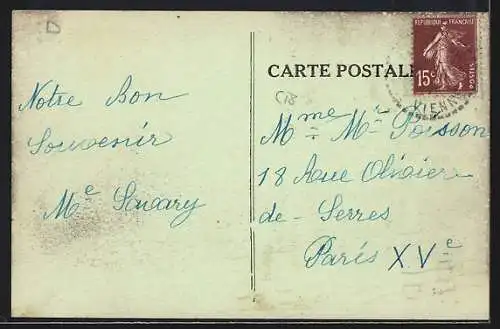 D
Notre Bon
Souvenir
Me Savary
CARTE POSTALE
REPUBLIQUE FRANÇAISE
15c
POSTES
VIENNE
Mme Mr Poisson
18 Rue Olivier
de-Serres
Paris XVe